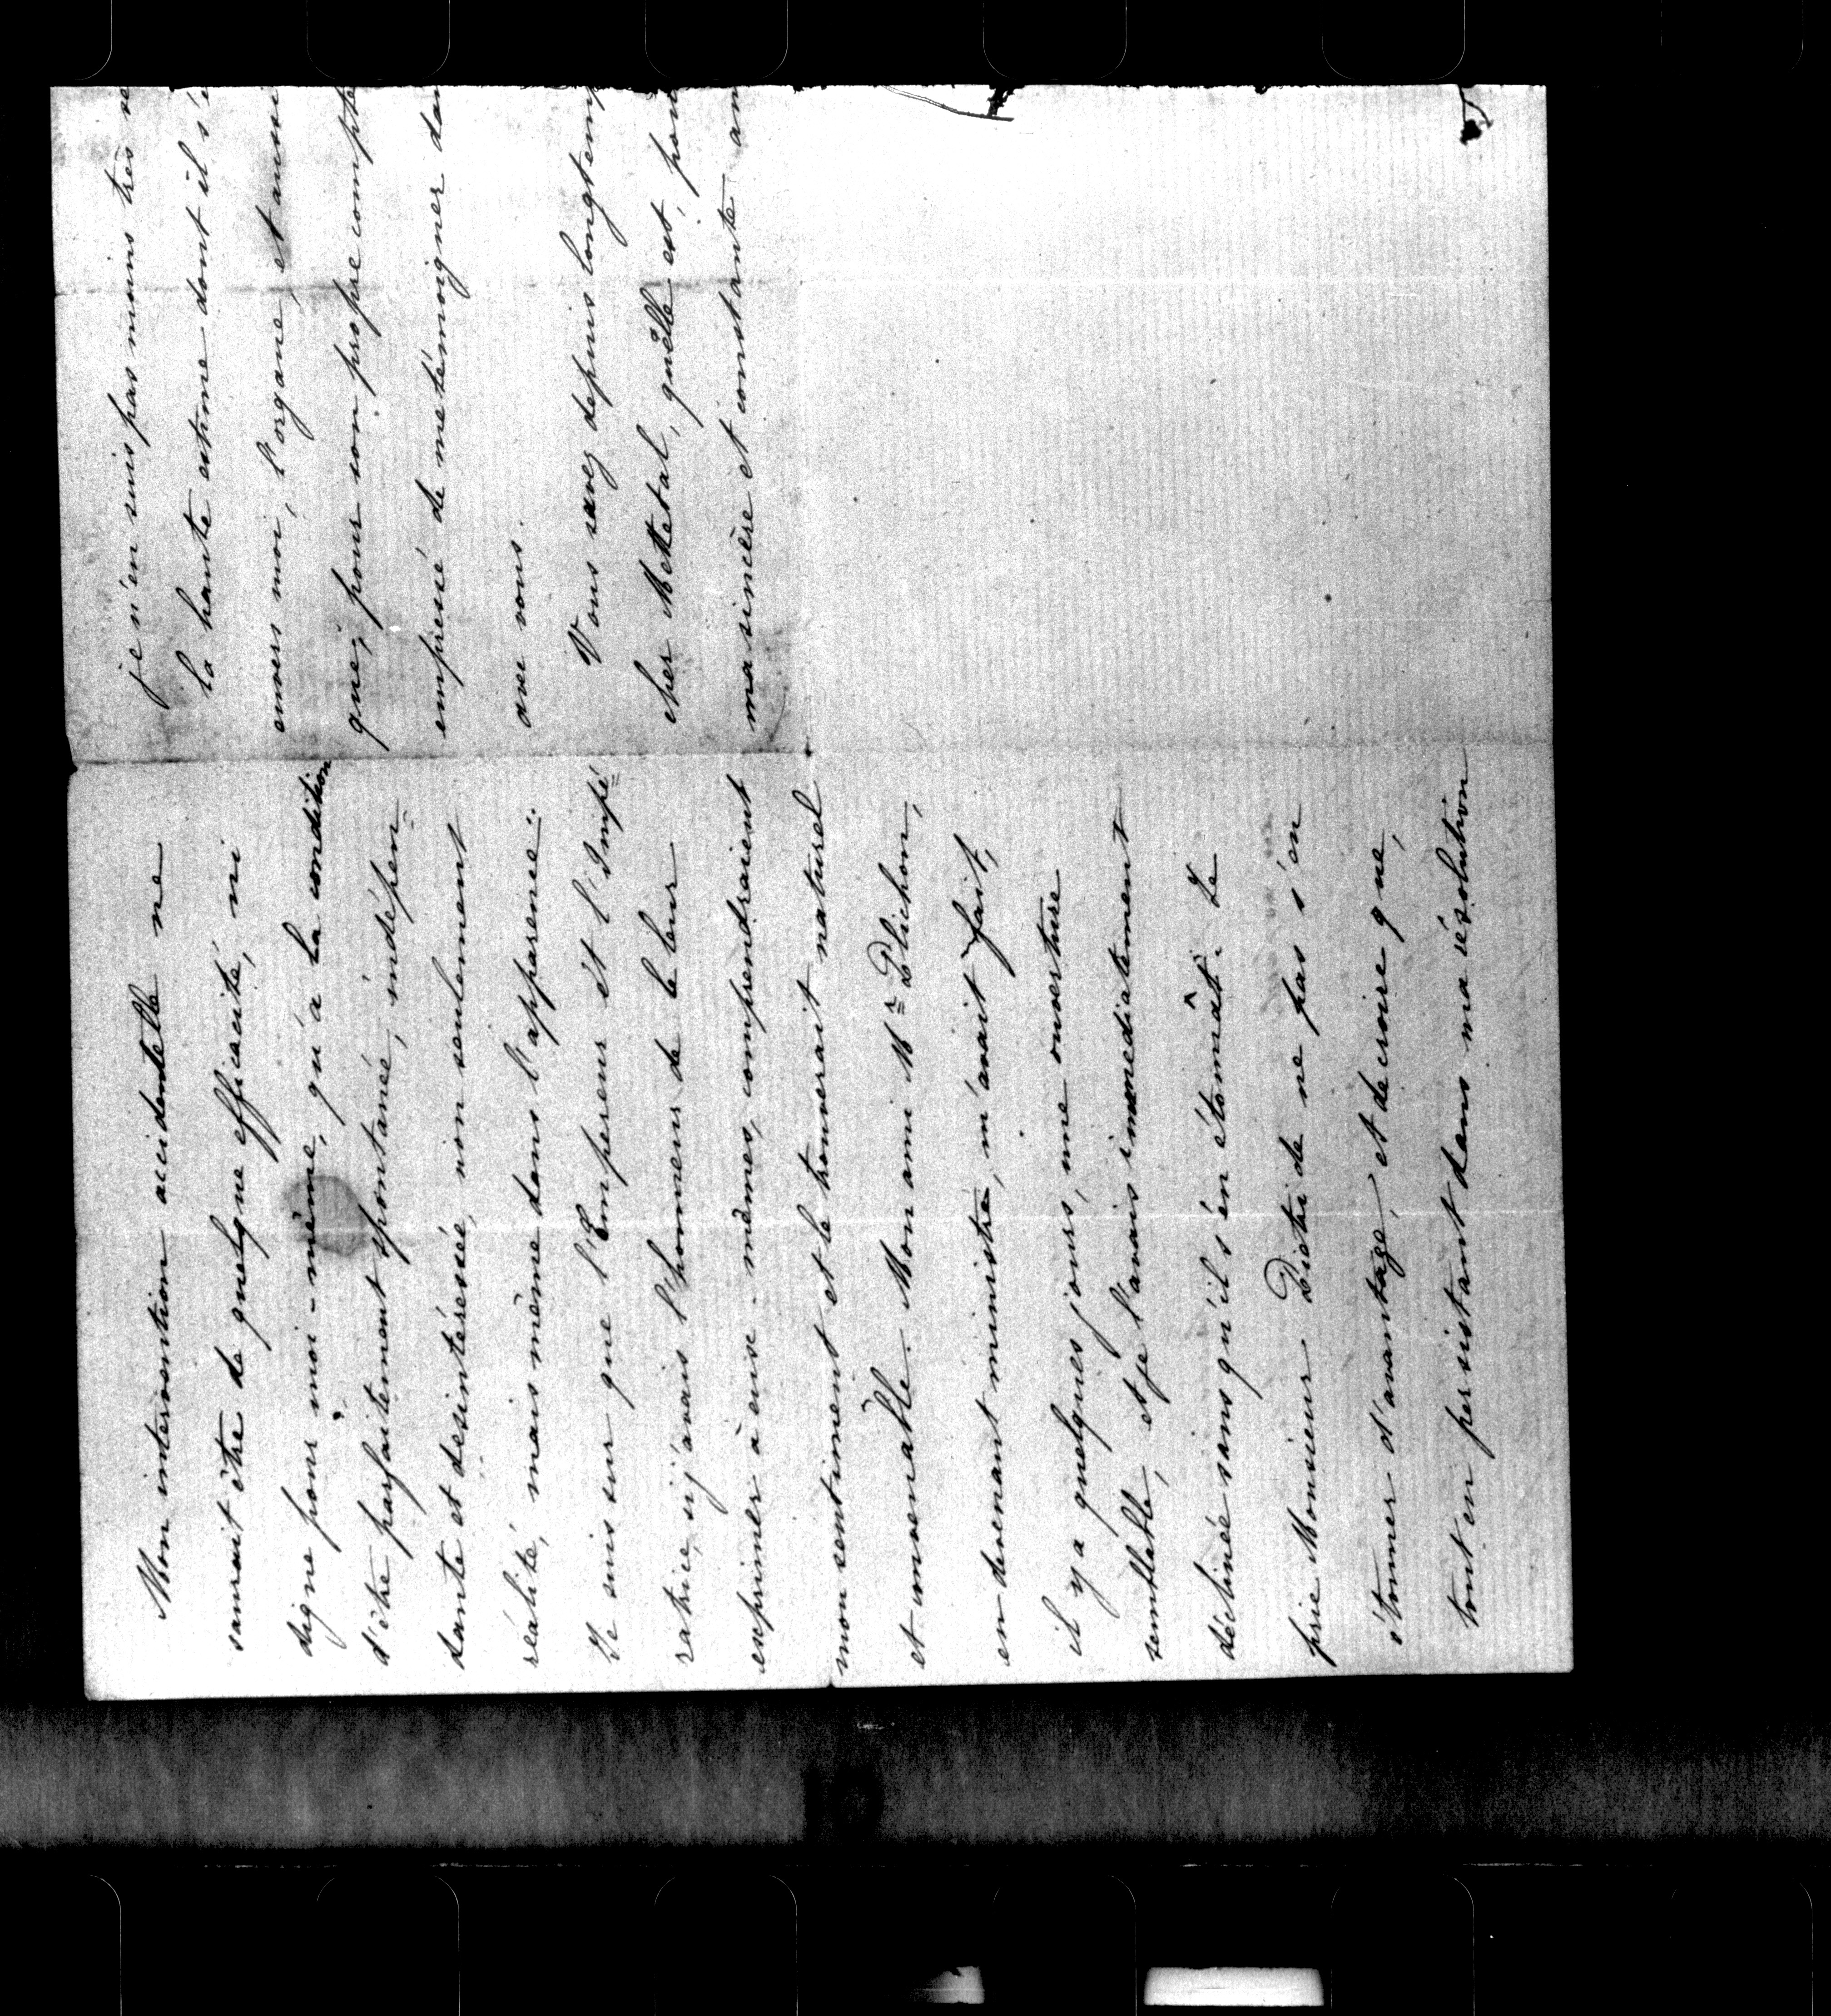 Mon intervention accidentelle ne
saurait être de quelque efficacité, ni
digne pour moi-même, qu'à la condition
d'être parfaitement spontanée, indépen-
dante et desintéressée, non seulement
réalité, mais même dans l'apparence.
Je suis sur que l'Empereur et l'Impé=
ratrice, si j'avais l'honneur de le leur
exprimer à eux-mêmes, comprendraient
mon sentiment et le trouverait naturel
et convenable. Mon ami Mr Plichon,
en devenant ministre, m'avait fait,
il y a quelques jours, une ouverture
semblable, et je l'avais immediatement
déclinée sans qu'il s'én étonnât. Je
prie Monsieur Piétri de ne pas s'en
étonner d'avantage, et de croire que,
tout en persistant dans ma résolution
je n'en suis pas moins très se
la haute estime dont il s'e
envers moi, l'organe, et ainsi
que, pour son propre compte
empressé de me témoigner dan
avec vous.
Vous savez depuis longtemp
cher Mettetal, qu'elle est, pou
ma sincère et constante am